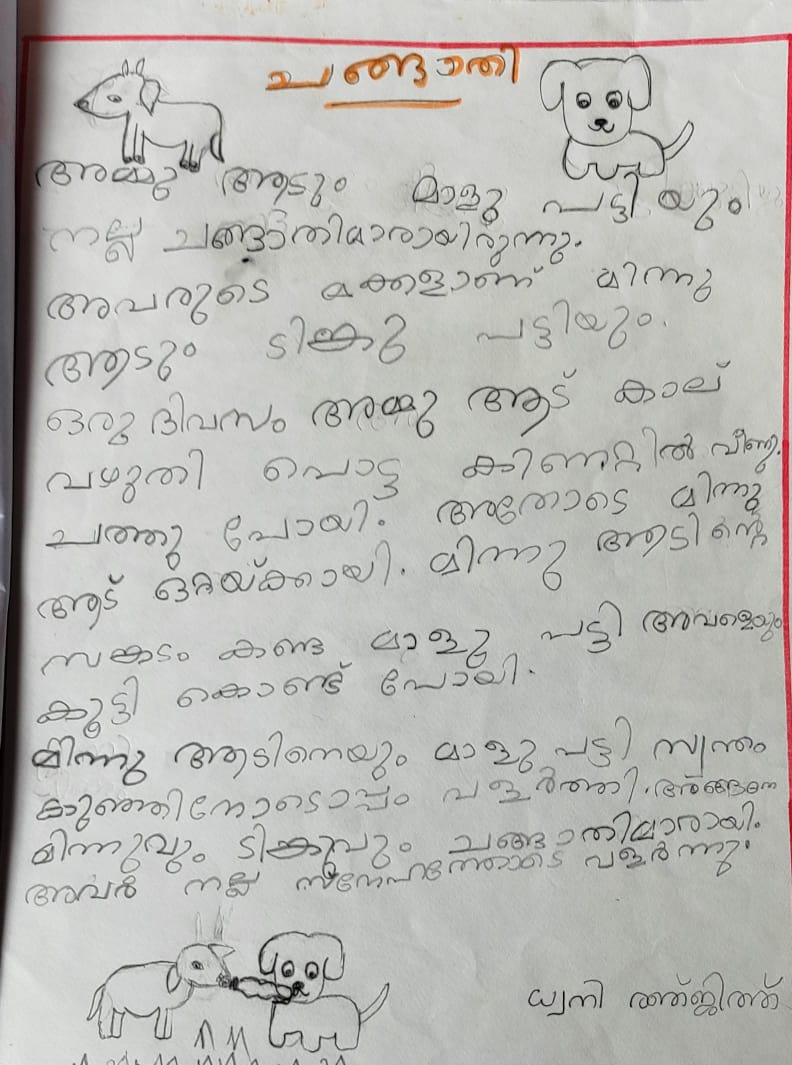 ചങ്ങാതി
അമ്മു ആടും മാളു പട്ടിയും
നല്ല ചങ്ങാതിമാരായിരുന്നു.
അവരുടെ മക്കളാണ് മിന്നു
ആടും ടിങ്കു പട്ടിയും.
ഒരു ദിവസം അമ്മു ആട് കാല്
വഴുതി പൊട്ട കിണറ്റിൽ വീണു.
ചത്തു പോയി. അതോടെ മിന്നു
ആട് ഒറ്റയ്ക്കായി. മിന്നു ആടിന്റെ
സങ്കടം കണ്ട മാളു പട്ടി അവളെയും
കൂട്ടി കൊണ്ട് പോയി.
മിന്നു ആടിനെയും മാളു പട്ടി സ്വന്തം
കുഞ്ഞിനോടൊപ്പം വളർത്തി. അങ്ങനെ
മിന്നുവും ടിങ്കുവും ചങ്ങാതിമാരായി.
അവർ നല്ല സ്നേഹത്തോടെ വളർന്നു.
ധ്വനി